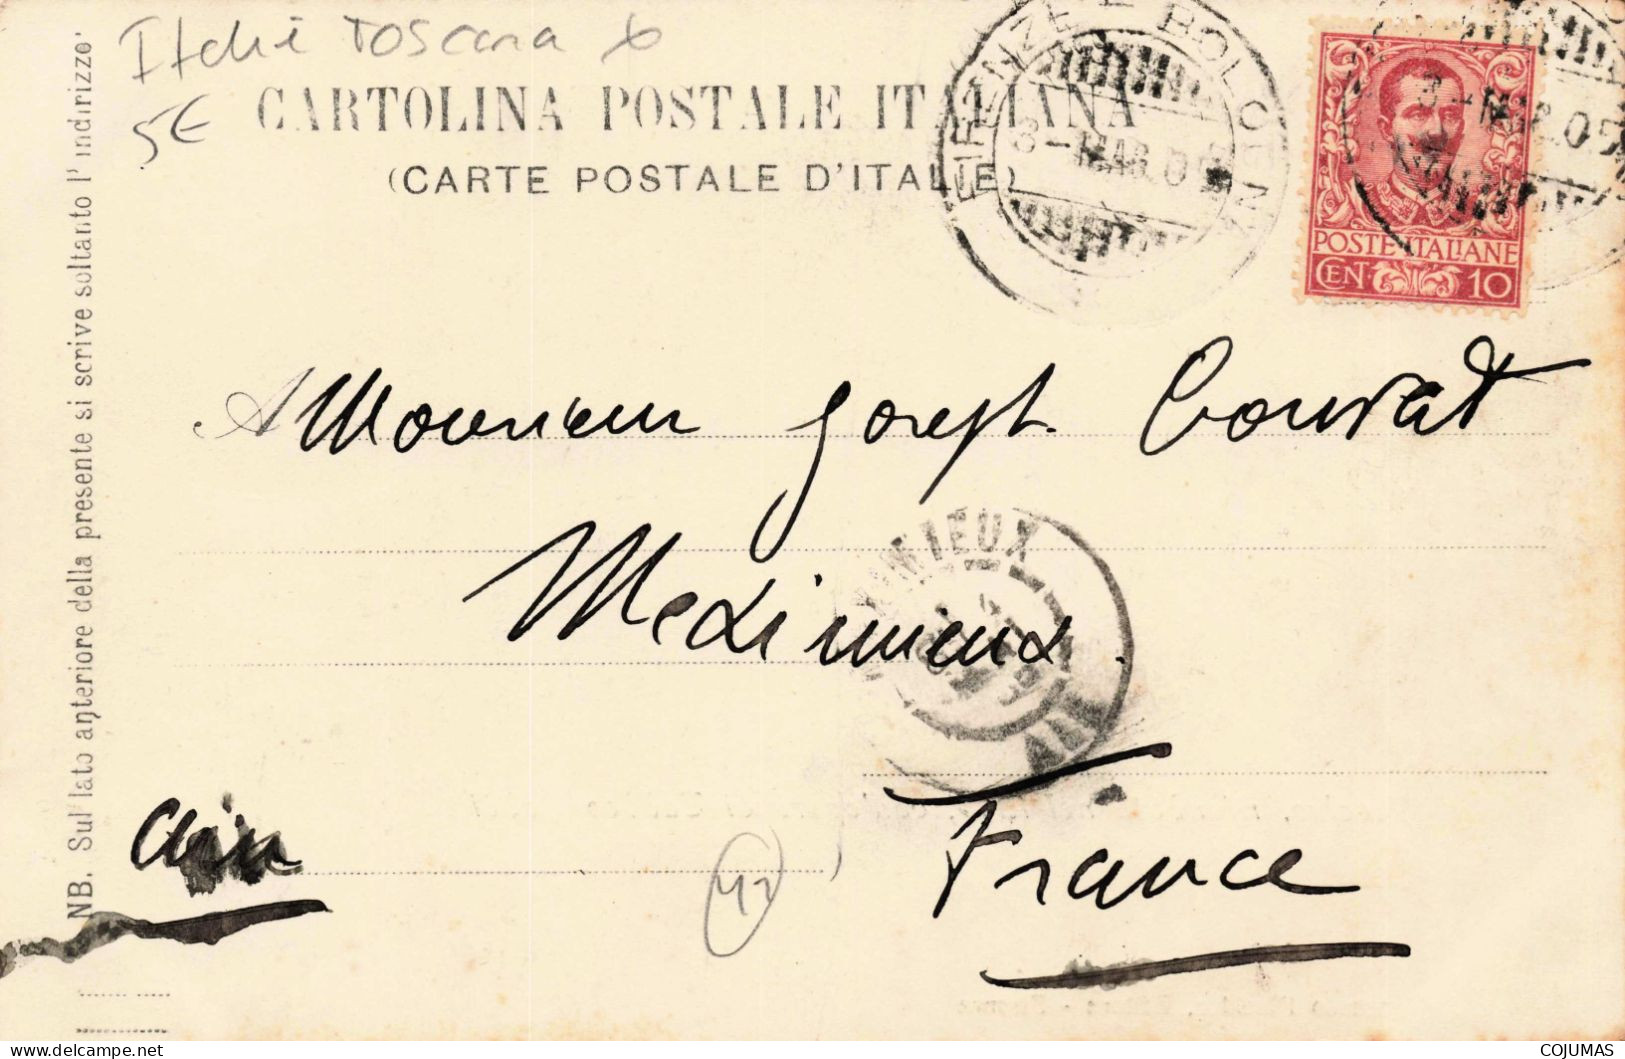 Italie Toscana
5€
CARTOLINA POSTALE ITALIANA
(CARTE POSTALE D'ITALIE)
FIRENZE E BOLOGNA
3-MAR.05
POSTE ITALIANE
CEN 10
3-MAR.05
NB. Sul lato anteriore della presente si scrive soltanto l' indirizzo
A Monsieur Joseph Convert
Meximieux
MEXIMIEUX
AIN
Ain
France
42
COJUMAS